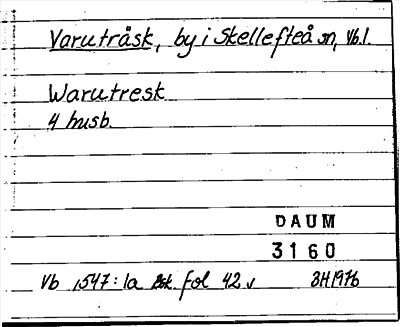 Varuträsk, by i Skellefteå sn, Vb.l.
Warutresk
4 husb.
DAUM
3160
Vb 1547:1a Bsk. fol 42 v 3H1976